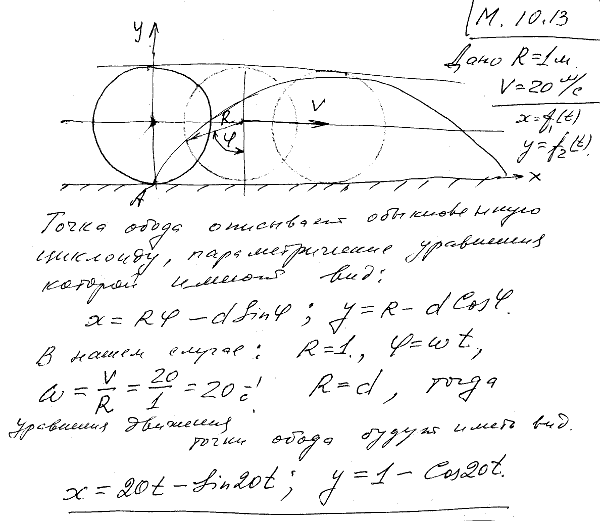 М. 10.13
Дано R=1м.
V=20 м/с
x=f₁(t)
y=f₂(t).
y
R
V
φ
A
x
Точка обода описывает обыкновенную
циклоиду, параметричекие уравнения
которой имеют вид:
x = Rφ - d Sinφ ; y = R - d Cosφ.
В нашем случае: R=1., φ=ωt,
ω = V/R = 20/1 = 20 c⁻¹ R=d, тогда
уравнения движения
точки обода будут иметь вид.
x = 20t - Sin20t ; y = 1 - Cos20t.